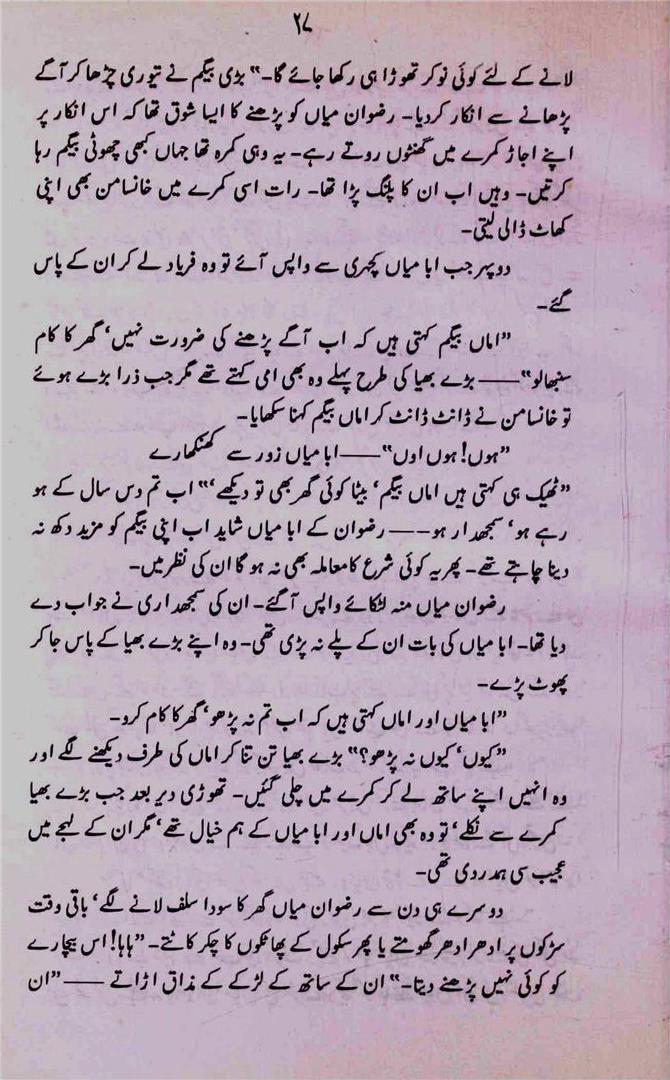 ۲۷
لانے کے لئے کوئی نوکر تھوڑا ہی رکھا جائے گا۔" بڑی بیگم نے تیوری چڑھا کر آگے
پڑھانے سے انکار کر دیا۔ رضوان میاں کو پڑھنے کا ایسا شوق تھا کہ اس انکار پر
اپنے اجاڑ کمرے میں گھنٹوں روتے رہے۔ یہ وہی کمرہ تھا جہاں کبھی چھوٹی بیگم رہا
کرتیں۔ وہیں اب ان کا پلنگ پڑا تھا۔ رات اسی کمرے میں خانسامن بھی اپنی
کھاٹ ڈالی لیتی۔
دوپہر جب ابا میاں کچہری سے واپس آئے تو وہ فریاد لے کر ان کے پاس
گئے۔
"اماں بیگم کہتی ہیں کہ اب آگے پڑھنے کی ضرورت نہیں' گھر کا کام
سنبھالو"—— بڑے بھیا کی طرح پہلے وہ بھی امی کہتے تھے مگر جب ذرا بڑے ہوئے
تو خانسامن نے ڈانٹ ڈانٹ کر اماں بیگم کہنا سکھایا۔
"ہوں! ہوں اوں"—— ابا میاں زور سے کھنکھارے
"ٹھیک ہی کہتی ہیں اماں بیگم' بیٹا کوئی گھر بھی تو دیکھے'" اب تم دس سال کے ہو
رہے ہو' سمجھدار ہو—— رضوان کے ابا میاں شاید اب اپنی بیگم کو مزید دکھ نہ
دینا چاہتے تھے۔ پھر یہ کوئی شرع کا معاملہ بھی نہ ہو گا ان کی نظر میں۔
رضوان میاں منہ لٹکائے واپس آ گئے۔ ان کی سمجھداری نے جواب دے
دیا تھا۔ ابا میاں کی بات ان کے پلے نہ پڑی تھی۔ وہ اپنے بڑے بھیا کے پاس جا کر
پھوٹ پڑے۔
"ابا میاں اور اماں کہتی ہیں کہ اب تم نہ پڑھو' گھر کا کام کرو۔
"کیوں' کیوں نہ پڑھو؟" بڑے بھیا تن تنا کر اماں کی طرف دیکھنے لگے اور
وہ انہیں اپنے ساتھ لے کر کمرے میں چلی گئیں۔ تھوڑی دیر بعد جب بڑے بھیا
کمرے سے نکلے' تو وہ بھی اماں اور ابا میاں کے ہم خیال تھے' مگر ان کے لہجے میں
عجیب سی ہمدردی تھی۔
دوسرے ہی دن سے رضوان میاں گھر کا سودا سلف لانے لگے' باقی وقت
سڑکوں پر ادھر ادھر گھومتے یا پھر سکول کے پھاٹکوں کا چکر کاٹتے۔ "ہاہا! اس بیچارے
کو کوئی نہیں پڑھنے دیتا۔" ان کے ساتھ کے لڑکے کے مذاق اڑاتے —— "ان